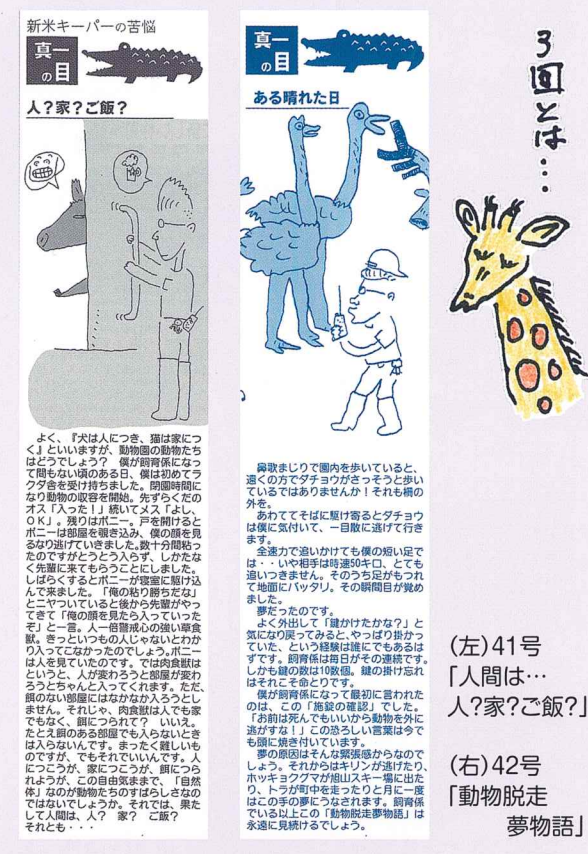 新米キーパーの苦悩
真一の目
人？家？ご飯？
よく、『犬は人につき、猫は家につ
く』といいますが、動物園の動物たち
はどうでしょう？　僕が飼育係になっ
て間もない頃のある日、僕は初めてラ
クダ舎を受け持ちました。閉園時間に
なり動物の収容を開始。先ずらくだの
オス「入った！」続いてメス「よし、
ＯＫ」。残りはポニー。戸を開けると
ポニーは部屋を覗き込み、僕の顔を見
るなり逃げていきました。数十分間粘っ
たのですがとうとう入らず、しかたな
く先輩に来てもらうことにしました。
しばらくするとポニーが寝室に駆け込
んで来ました。「俺の粘り勝ちだな」
とニヤついていると後から先輩がやっ
てきて「俺の顔を見たら入っていった
ぞ」と一言。人一倍警戒心の強い草食
獣。きっといつもの人じゃないとわか
り入ってこなかったのでしょう。ポニー
は人を見ていたのです。では肉食獣は
というと、人が変わろうと部屋が変わ
ろうとちゃんと入ってくれます。ただ、
餌のない部屋にはなかなか入ろうとし
ません。それじゃ、肉食獣は人でも家
でもなく、餌につられて？　いいえ。
たとえ餌のある部屋でも入らないとき
は入らないんです。まったく難しいも
のですが、でもそれでいいんです。人
につこうが、家につこうが、餌につら
れようが、この自由気ままで、「自然
体」なのが動物たちのすばらしさなの
ではないでしょうか。それでは、果た
して人間は、人？　家？　ご飯？
それとも・・・
真一の目
ある晴れた日
鼻歌まじりで園内を歩いていると、
遠くの方でダチョウがさっそうと歩い
ているではありませんか！それも柵の
外を。
あわててそばに駆け寄るとダチョウ
は僕に気付いて、一目散に逃げて行き
ます。
全速力で追いかけても僕の短い足で
は・・いや相手は時速50キロ、とても
追いつきません。そのうち足がもつれ
て地面にバッタリ。その瞬間目が覚め
ました。
夢だったのです。
よく外出して「鍵かけたかな？」と
気になり戻ってみると、やっぱり掛かっ
ていた、という経験は誰にでもあるは
ずです。飼育係は毎日がその連続です。
しかも鍵の数は10数個。鍵の掛け忘れ
はそれこそ命とりです。
僕が飼育係になって最初に言われた
のは、この「施錠の確認」でした。
「お前は死んでもいいから動物を外に
逃がすな！」この恐ろしい言葉は今で
も頭に焼き付いています。
夢の原因はそんな緊張感からなので
しょう。それからはキリンが逃げたり、
ホッキョクグマが旭山スキー場に出た
り、トラが町中を走ったりと月に一度
はこの手の夢にうなされます。飼育係
でいる以上この「動物脱走夢物語」は
永遠に見続けるでしょう。
3回とは…
(左)41号
「人間は…
人?家?ご飯?」
(右)42号
「動物脱走
夢物語」